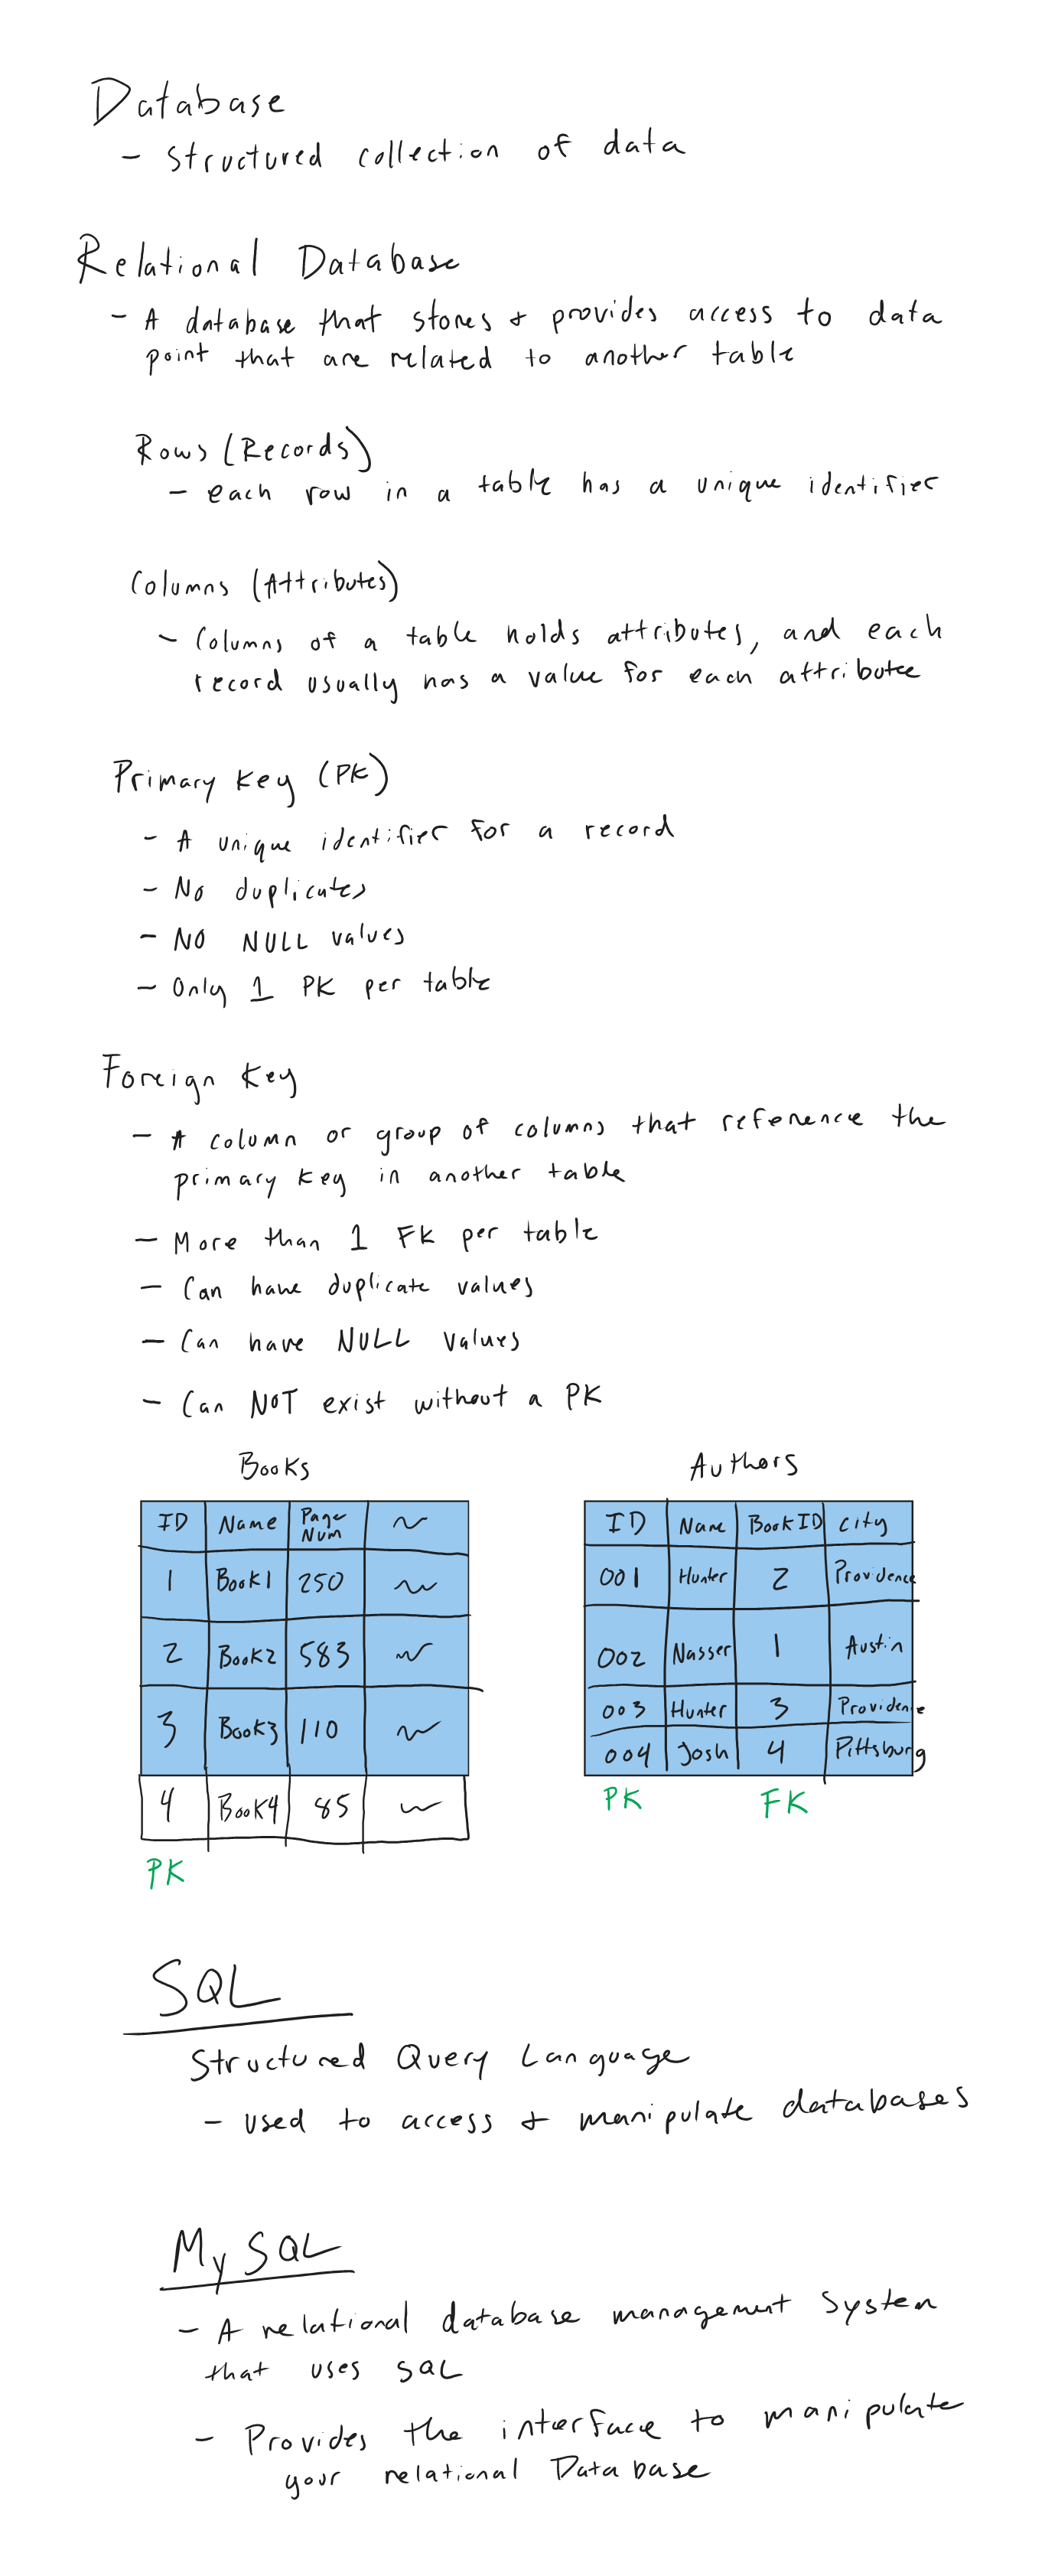 Database
- Structured collection of data
Relational Database
- A database that stores & provides access to data
point that are related to another table
Rows (Records)
- each row in a table has a unique identifier
Columns (Attributes)
- Columns of a table holds attributes, and each
record usually has a value for each attribute
Primary Key (PK)
- A unique identifier for a record
- No duplicates
- NO NULL values
- Only 1 PK per table
Foreign Key
- A column or group of columns that reference the
primary key in another table
- More than 1 FK per table
- Can have duplicate values
- Can have NULL values
- Can NOT exist without a PK
Books
ID Name Page Num ~
1 Book1 250 ~
2 Book2 583 ~
3 Book3 110 ~
4 Book4 85 ~
PK
Authors
ID Name BookID City
001 Hunter 2 Providence
002 Nasser 1 Austin
003 Hunter 3 Providence
004 Josh 4 Pittsburg
PK FK
SQL
Structured Query Language
- used to access & manipulate databases
MySQL
- A relational database management System
that uses SQL
- Provides the interface to manipulate
your relational Database